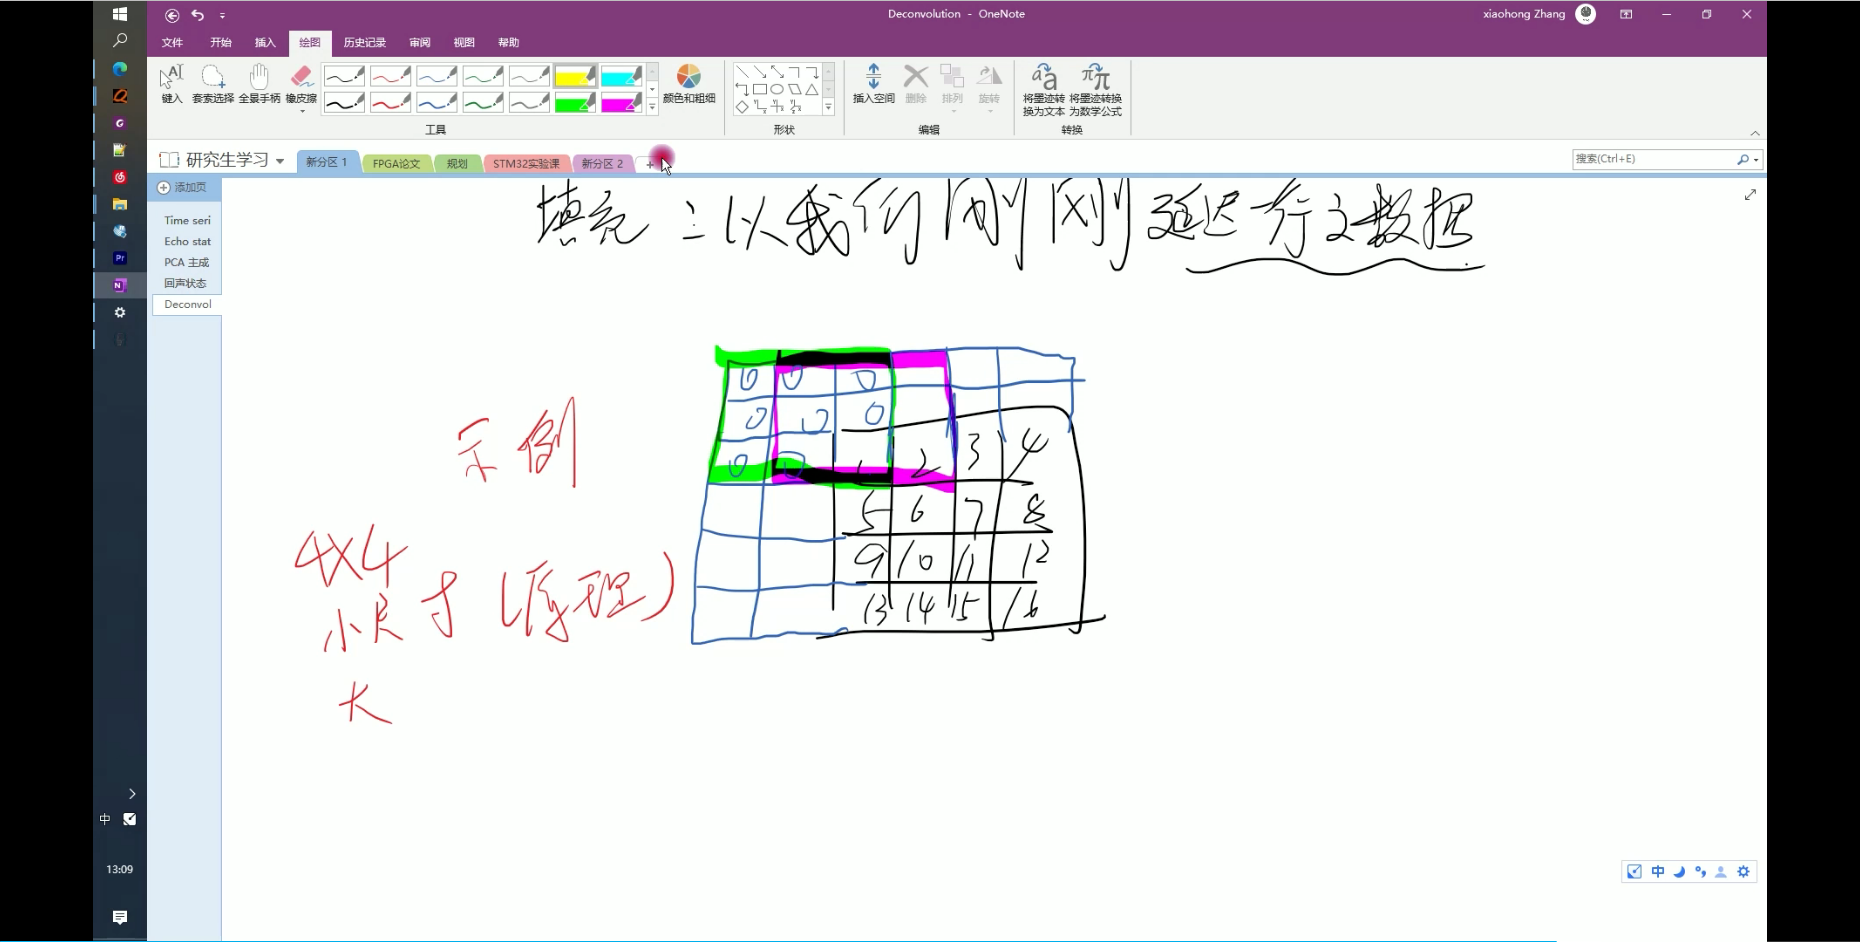 Deconvolution - OneNote
xiaohong Zhang
文件 开始 插入 绘图 历史记录 审阅 视图 帮助
键入 套索选择 全景手柄 橡皮擦
颜色和粗细
插入空间 删除 排列 旋转
将墨迹转换为文本
将墨迹转换为数学公式
工具 形状 编辑 转换
研究生学习 新分区 1 FPGA论文 规划 STM32实验课 新分区 2 +
搜索(Ctrl+E)
添加页
Time seri
Echo stat
PCA 主成
回声状态
Deconvol
填充:以我们刚刚延迟一行之数据
示例
4X4
小尺寸(原理)
大
0 0 0
0 0 0
0 0 1 2 3 4
5 6 7 8
9 10 11 12
13 14 15 16
中
13:09
中